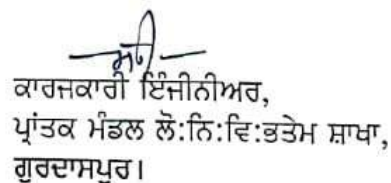 ਸਹੀ
ਕਾਰਜਕਾਰੀ ਇੰਜੀਨੀਅਰ,
ਪ੍ਰਾਂਤਕ ਮੰਡਲ ਲੋ:ਨਿ:ਵਿ:ਭਤੇਮ ਸ਼ਾਖਾ,
ਗੁਰਦਾਸਪੁਰ।